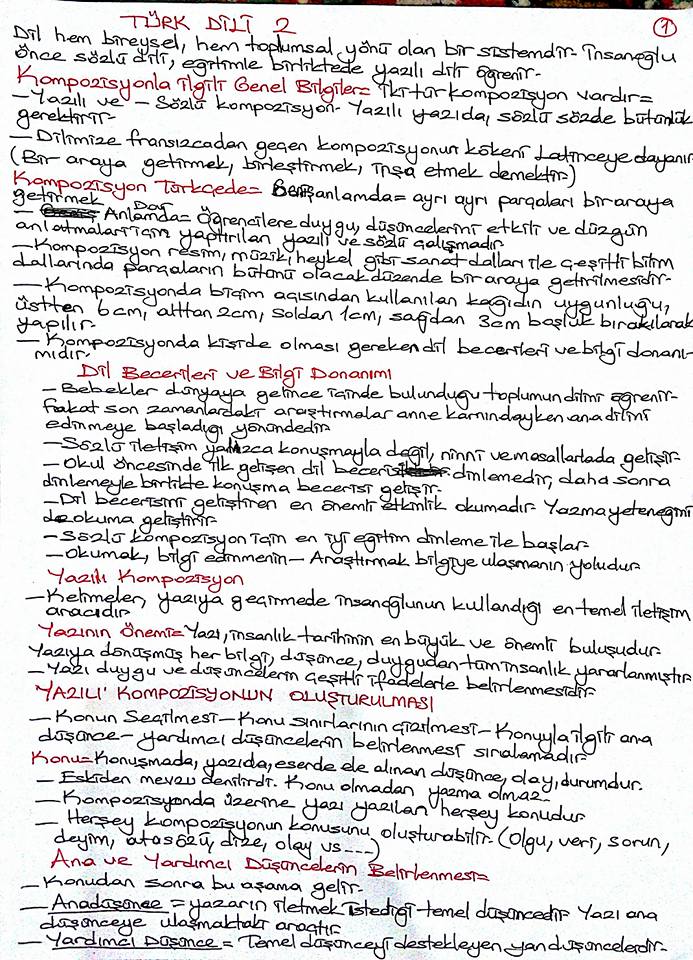 TÜRK DİLİ 2
1
Dil hem bireysel, hem toplumsal yönü olan bir sistemdir- İnsanoğlu
önce sözlü dili, eğitimle birliktede yazılı dili öğrenir-
Kompozisyonla İlgili Genel Bilgiler= İki tür kompozisyon vardır=
-Yazılı ve - Sözlü kompozisyon- Yazılı yazıda, sözlü sözde bütünlük
gerektirir-
- Dilimize fransızcadan geçen kompozisyonun kökeni Latinceye dayanır
(Bir araya getirmek, birleştirmek, inşa etmek demektir-)
Kompozisyon Türkçede= anlamda= ayrı ayrı parçaları biraraya
getirmek
- Dar Anlamda= Öğrencilere duygu, düşüncelerini etkili ve düzgün
anlatmaları için yaptırılan yazılı ve sözlü çalışmadır
-Kompozisyon resim, müzik, heykel gibi sanat dalları ile çeşitli bilim
dallarında parçaların bütünü olacak düzende bir araya getirilmesidir-
- Kompozisyonda biçim açısından kullanılan kağıdın uygunluğu,
üstten 6cm, alttan 2cm, soldan 1cm, sağdan 3cm boşluk bırakılarak
yapılır-
- Kompozisyonda kişide olması gereken dil becerileri ve bilgi donanı-
mıdır-
Dil Becerileri ve Bilgi Donanımı
- Bebekler dünyaya gelince içinde bulunduğu toplumun dilini öğrenir-
fakat son zamanlardaki araştırmalar anne karnındayken ana dilini
edinmeye başladığı yönündedir-
-Sözlü iletişim yalnızca konuşmayla değil, ninni ve masallarlada gelişir-
- Okul öncesinde ilk gelişen dil becerisi dinlemedir, daha sonra
dinlemeyle birlikte konuşma becerisi gelişir-
-Dil becerisini geliştiren en önemli etkinlik okumadır- Yazma yeteneğini
de okuma geliştirir-
-Sözlü kompozisyon için en iyi eğitim dinleme ile başlar-
-Okumak, bilgi edinmenin- Araştırmak bilgiye ulaşmanın yoludur-
Yazılı Kompozisyon
-Kelimeler, yazıya geçirmede insanoğlunun kullandığı en temel iletişim
aracıdır
Yazının Önemi= Yazı, insanlık tarihinin en büyük ve önemli buluşudur-
Yazıya dönüşmüş her bilgi, düşünce, duygudan tüm insanlık yararlanmıştır-
-Yazı duygu ve düşüncelerin çeşitli ifadelerle belirlenmesidir-
YAZILI KOMPOZİSYONUN OLUŞTURULMASI
- Konun Seçilmesi- Konu sınırlarının çizilmesi- Konuyla ilgili ana
düşünce- yardımcı düşüncelerin belirlenmesi sıralamadır-
Konu= Konuşmada, yazıda, eserde ele alınan düşünce, olay, durumdur.
- Eskiden mevzu denilirdi. Konu olmadan yazma olmaz-
- Kompozisyonda üzerine yazı yazılan herşey konudur-
- Herşey kompozisyonun konusunu oluşturabilir- (Olgu, veri, sorun,
deyim, atasözü, dize, olay vs----)
Ana ve Yardımcı Düşüncelerin Belirlenmesi=
- Konudan sonra bu aşama gelir-
- Anadüşünce = yazarın iletmek istediği temel düşüncedir- Yazı ana
düşünceye ulaşmaktaki araçtır
- Yardımcı Düşünce = Temel düşünceyi destekleyen yan düşüncelerdir-